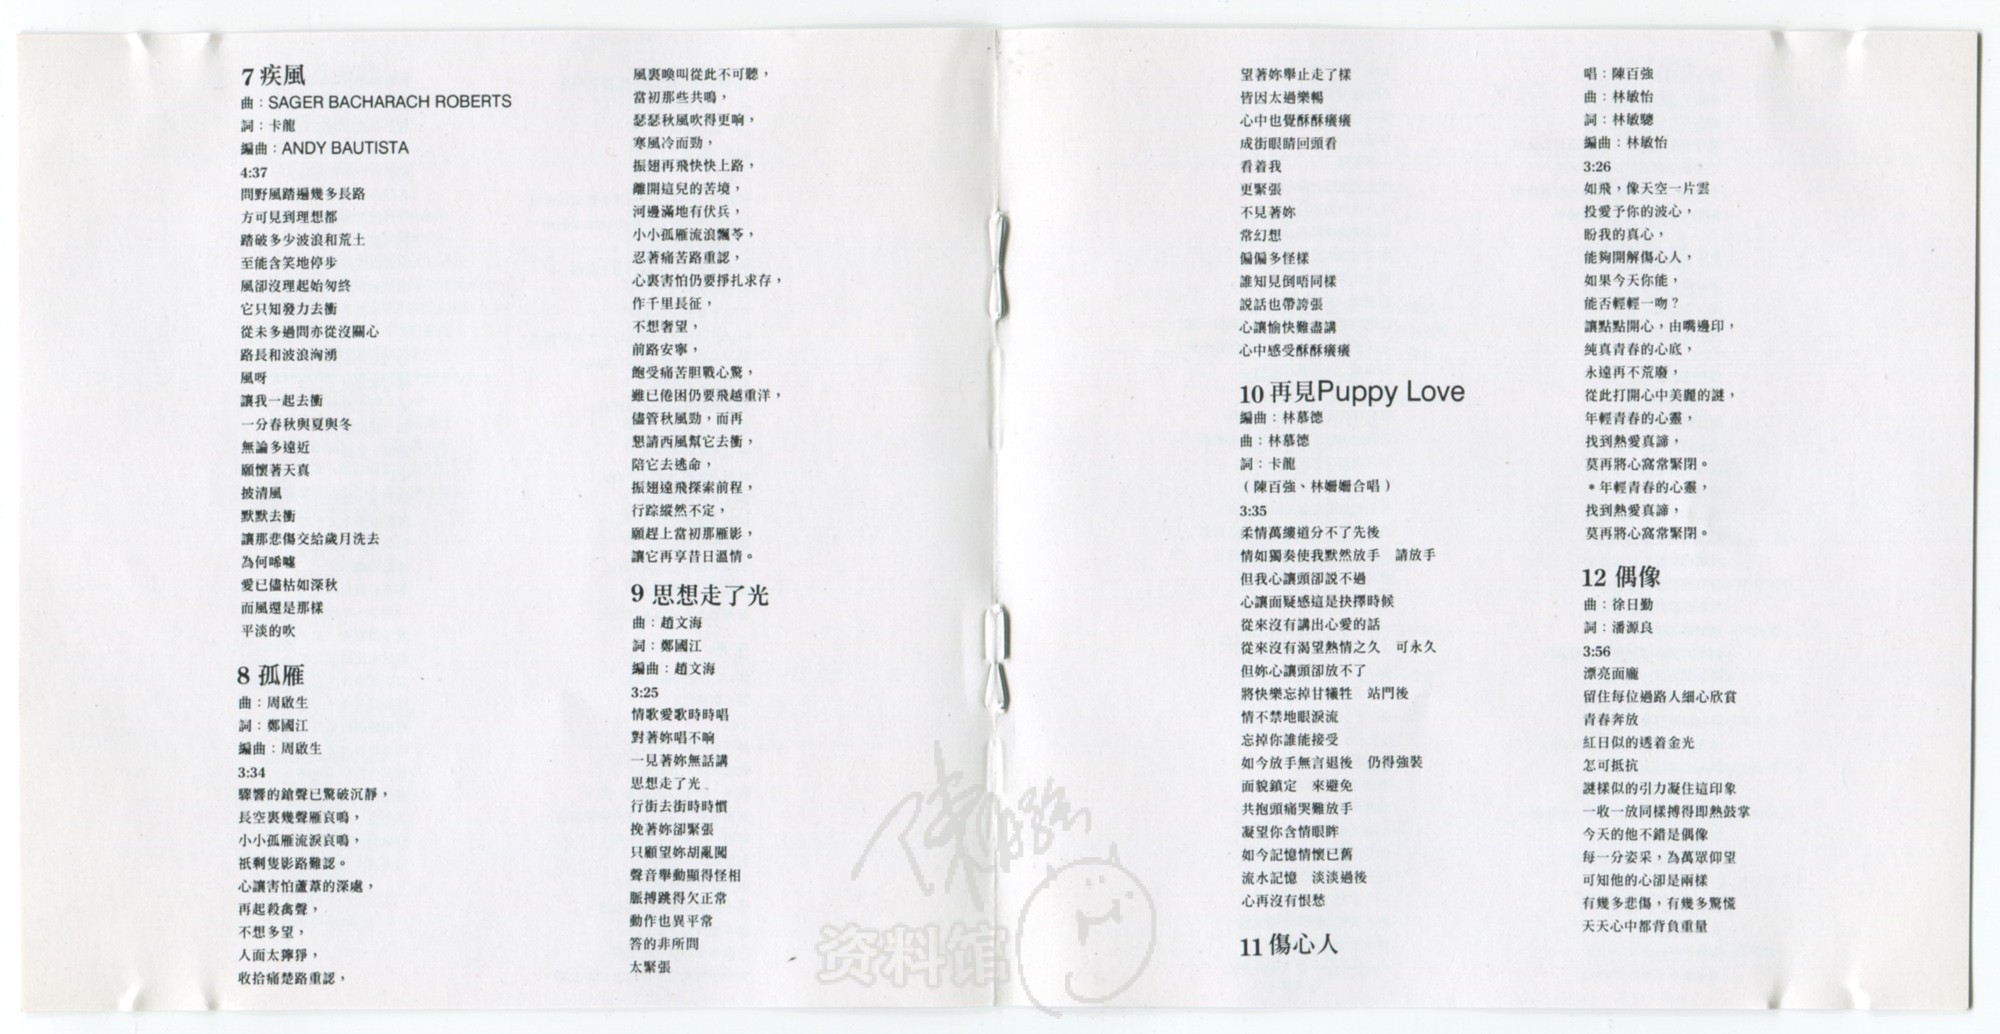 7 疾風
曲：SAGER BACHARACH ROBERTS
詞：卡龍
編曲：ANDY BAUTISTA
4:37
問野風踏遍幾多長路
方可見到理想都
踏破多少波浪和荒土
至能含笑地停步
風卻沒理起始匆終
它只知發力去衝
從未多過問亦從沒關心
路長和波浪洶湧
風呀
讓我一起去衝
一分春秋與夏與冬
無論多遠近
願懷著天真
披清風
默默去衝
讓那悲傷交給歲月洗去
為何唏噓
愛已儘枯如深秋
而風還是那樣
平淡的吹
8 孤雁
曲：周啟生
詞：鄭國江
編曲：周啟生
3:34
驟響的鎗聲已驚破沉靜，
長空裏幾聲雁哀鳴，
小小孤雁流淚哀鳴，
祇剩隻影路難認。
心讓害怕蘆葦的深處，
再起殺禽聲，
不想多望，
人面太獰猙，
收拾痛楚路重認，
風裏喚叫從此不可聽，
當初那些共鳴，
瑟瑟秋風吹得更响，
寒風冷而勁，
振翅再飛快快上路，
離開這兒的苦境，
河邊滿地有伏兵，
小小孤雁流浪飄苓，
忍著痛苦路重認，
心裏害怕仍要掙扎求存，
作千里長征，
不想奢望，
前路安寧，
飽受痛苦胆戰心驚，
雖已倦困仍要飛越重洋，
儘管秋風勁，而再
懇請西風幫它去衝，
陪它去逃命，
振翅遠飛探索前程，
行踪縱然不定，
願趕上當初那雁影，
讓它再享昔日溫情。
9 思想走了光
曲：趙文海
詞：鄭國江
編曲：趙文海
3:25
情歌愛歌時時唱
對著妳唱不响
一見著妳無話講
思想走了光
行街去街時時慣
挽著妳卻緊張
只顧望妳胡亂闖
聲音舉動顯得怪相
脈搏跳得欠正常
動作也異平常
答的非所問
太緊張
望著妳舉止走了樣
皆因太過樂暢
心中也覺酥酥癢癢
成街眼睛回頭看
看着我
更緊張
不見著妳
常幻想
偏偏多怪樣
誰知見倒唔同樣
説話也帶誇張
心讓愉快難盡講
心中感受酥酥癢癢
10 再見Puppy Love
編曲：林慕德
曲：林慕德
詞：卡龍
（陳百強、林姍姍合唱）
3:35
柔情萬縷道分不了先後
情如獨奏使我默然放手　請放手
但我心讓頭卻説不過
心讓面疑惑這是抉擇時候
從來沒有講出心愛的話
從來沒有渴望熱情之久　可永久
但妳心讓頭卻放不了
將快樂忘掉甘犧牲　站門後
情不禁地眼淚流
忘掉你誰能接受
如今放手無言退後　仍得強裝
面貌鎮定　來避免
共抱頭痛哭難放手
凝望你含情眼眸
如今記憶情懷已舊
流水記憶　淡淡過後
心再沒有恨愁
11 傷心人
唱：陳百強
曲：林敏怡
詞：林敏驄
編曲：林敏怡
3:26
如飛，像天空一片雲
投愛予你的波心，
盼我的真心，
能夠開解傷心人，
如果今天你能，
能否輕輕一吻？
讓點點開心，由嘴邊印，
純真青春的心底，
永遠再不荒廢，
從此打開心中美麗的謎，
年輕青春的心靈，
找到熱愛真諦，
莫再將心窩常緊閉。
＊年輕青春的心靈，
找到熱愛真諦，
莫再將心窩常緊閉。
12 偶像
曲：徐日勤
詞：潘源良
3:56
漂亮面龐
留住每位過路人細心欣賞
青春奔放
紅日似的透着金光
怎可抵抗
謎樣似的引力凝住這印象
一收一放同樣搏得即熱鼓掌
今天的他不錯是偶像
每一分姿采，為萬眾仰望
可知他的心卻是兩樣
有幾多悲傷，有幾多驚慌
天天心中都背負重量
陳百強
资料馆